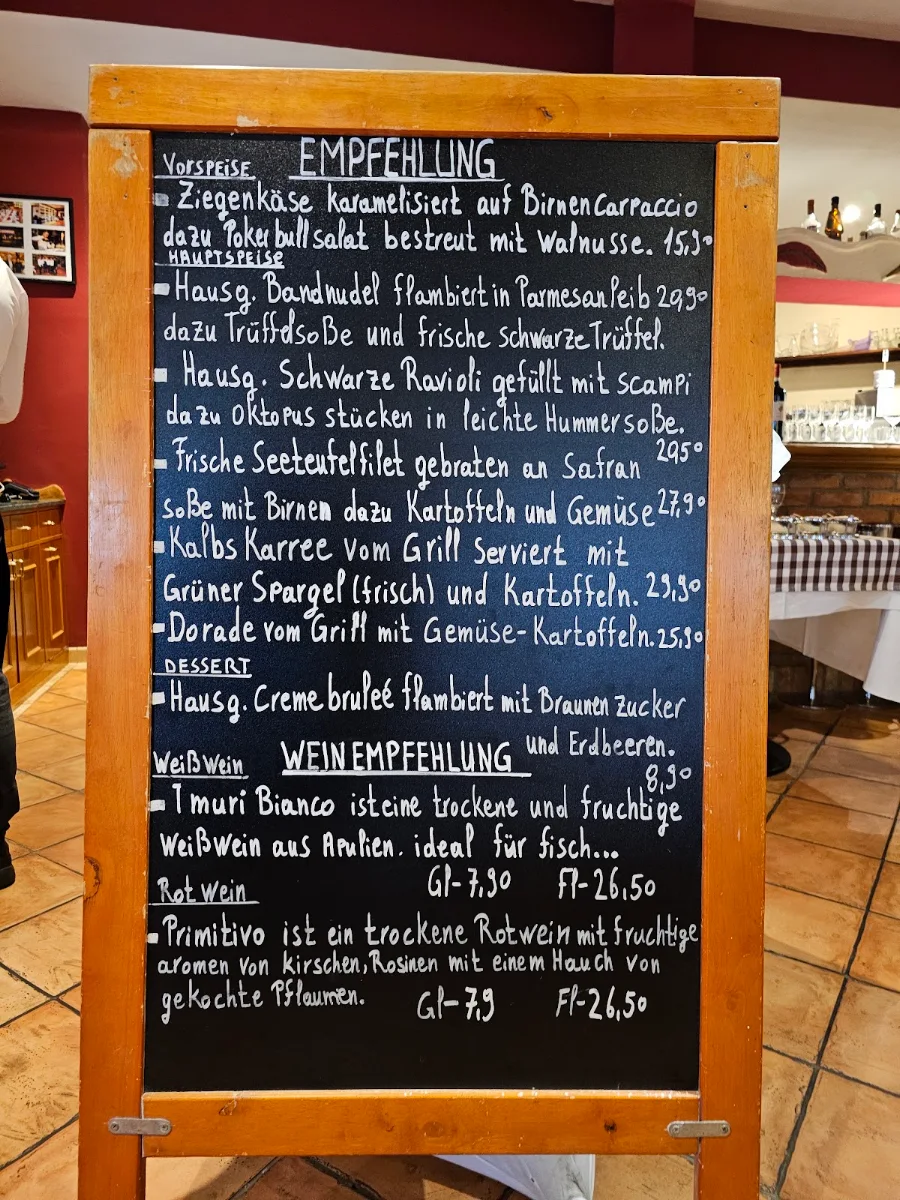 EMPFEHLUNG
Vorspeise
- Ziegenkäse karamelisiert auf Birnen Carpaccio
dazu Poker bull salat bestreut mit Walnusse. 15,90
HAUPTSPEISE
- Hausg. Bandnudel flambiert in Parmesanleib 20,90
dazu Trüffelsoße und frische schwarze Trüffel.
- Hausg. Schwarze Ravioli gefüllt mit scampi
dazu Oktopus stücken in leichte Hummersoße.
29,50
- Frische Seeteufelfilet gebraten an Safran
soße mit Birnen dazu Kartoffeln und Gemüse 27,90
- Kalbs Karree vom Grill Serviert mit
Grüner Spargel (frisch) und Kartoffeln. 29,90
- Dorade vom Grill mit Gemüse-Kartoffeln. 25,90
DESSERT
- Hausg. Creme bruleé flambiert mit Braunen Zucker
und Erdbeeren.
8,90
WEINEMPFEHLUNG
Weißwein
- I muri Bianco ist eine trockene und fruchtige
Weißwein aus Apulien. ideal für fisch...
Gl-7,90 Fl-26,50
Rotwein
- Primitivo ist ein trockene Rotwein mit fruchtige
aromen von kirschen, Rosinen mit einem Hauch von
gekochte Pflaumen.
Gl-7,9 Fl-26,50